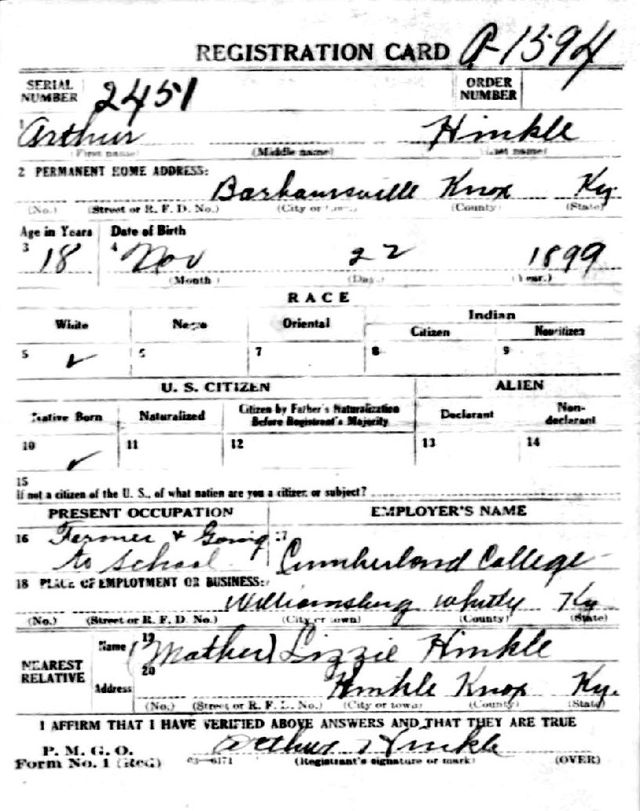 REGISTRATION CARD A-1594
SERIAL NUMBER 2451 ORDER NUMBER
1 Arthur Hinkle
(First name) (Middle name) (Last name)
2 PERMANENT HOME ADDRESS:
Barhoursville Knox Ky.
(No.) (Street or R. F. D. No.) (City or town) (County) (State)
Age in Years Date of Birth
3 18 4 Nov 22 1899
(Month) (Day) (Year.)
RACE
White Negro Oriental Indian
Citizen Noncitizen
5 ✓ 6 7 8 9
U. S. CITIZEN ALIEN
Native Born Naturalized Citizen by Father's Naturalization Before Registrant's Majority Declarant Non-declarant
10 ✓ 11 12 13 14
15
If not a citizen of the U. S., of what nation are you a citizen or subject?
PRESENT OCCUPATION EMPLOYER'S NAME
16 Farmer + Going 17
to School Cumberland College
18 PLACE OF EMPLOYMENT OR BUSINESS:
Williamsburg Whitly Ky
(No.) (Street or R. F. D. No.) (City or town) (County) (State)
NEAREST RELATIVE Name 19 (Mother) Lizzie Hinkle
Address 20 Hinkle Knox Ky.
(No.) (Street or R. F. D. No.) (City or town) (County) (State)
I AFFIRM THAT I HAVE VERIFIED ABOVE ANSWERS AND THAT THEY ARE TRUE
P. M. G. O. Arthur Hinkle
Form No. 1 (Red) 03-6171 (Registrant's signature or mark) (OVER)